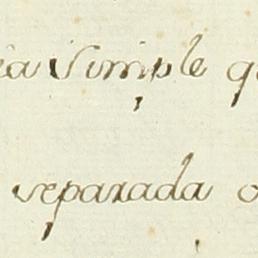 simple
separada